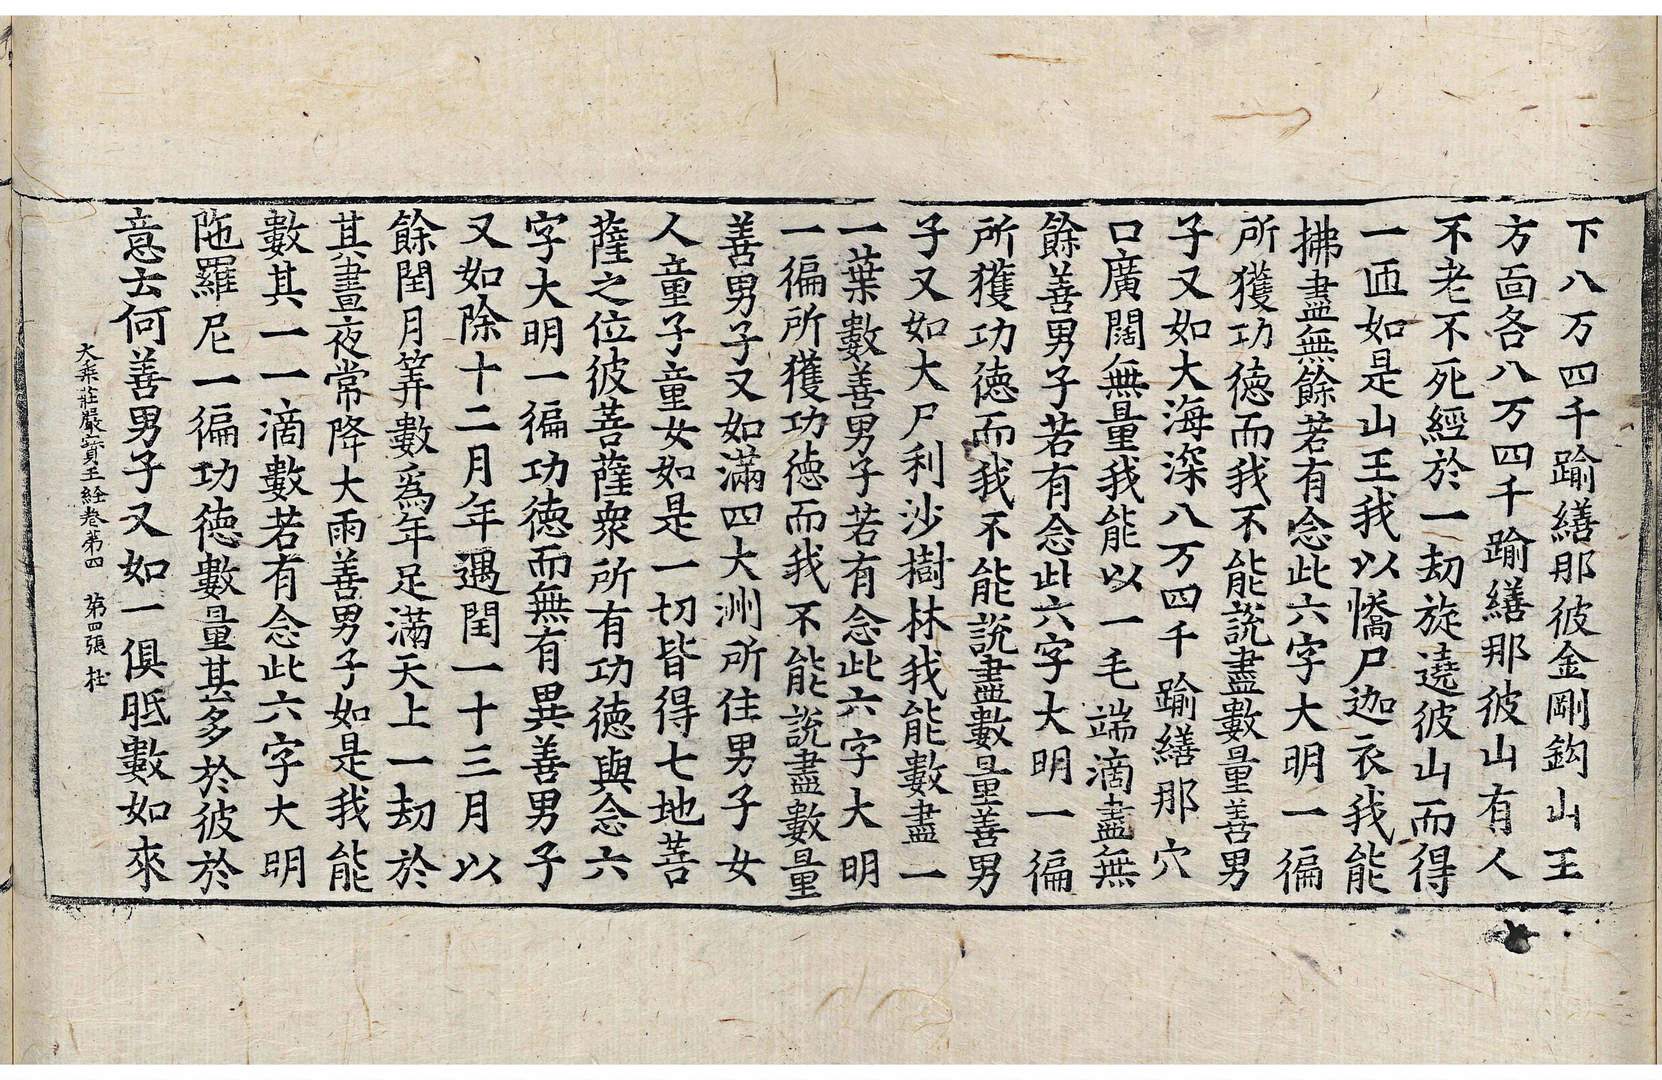 下八万四千踰繕那彼金剛鈎山王
方面各八万四千踰繕那彼山有人
不老不死經於一劫旋遶彼山而得
一匝如是山王我以憍尸迦衣我能
拂盡無餘若有念此六字大明一徧
所獲功德而我不能說盡數量善男
子又如大海深八万四千踰繕那穴
口廣闊無量我能以一毛端滴盡無
餘善男子若有念此六字大明一徧
所獲功德而我不能說盡數量善男
子又如大尸利沙樹林我能數盡一
一葉數善男子若有念此六字大明
一徧所獲功德而我不能說盡數量
善男子又如滿四大洲所住男子女
人童子童女如是一切皆得七地菩
薩之位彼菩薩衆所有功德與念六
字大明一徧功德而無有異善男子
又如除十二月年遇閏一十三月以
餘閏月筭數爲年足滿天上一劫於
其晝夜常降大雨善男子如是我能
數其一一滴數若有念此六字大明
陁羅尼一徧功德數量甚多於彼於
意云何善男子又如一俱胝數如來
大乗莊嚴寶王経卷第四　第四張　杜